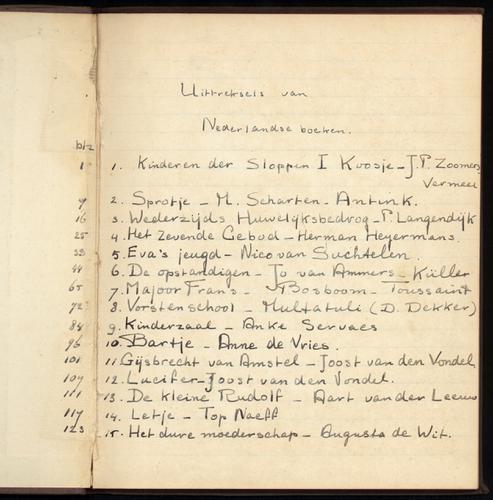 Uittreksels van
Nederlandse boeken.
blz
1 1. Kinderen der Sloppen I Koosje - J.P. Zoomers
Vermeer
9 2. Sprotje - M. Scharten - Antink.
16 3. Wederzijds Huwelijksbedrog - P. Langendijk
25 4. Het zevende Gebod - Herman Heyermans.
33 5. Eva's jeugd - Nico van Suchtelen.
44 6. De opstandigen - Jo van Ammers - Küller
65 7. Majoor Frans - Bosboom - Toussaint
72 8. Vorstenschool - Multatuli (D. Dekker)
84 9. Kinderzaal - Anke Servaes
96 10. Bartje - Anne de Vries.
101 11. Gijsbrecht van Amstel - Joost van den Vondel
107 12. Lucifer - Joost van den Vondel.
111 13. De kleine Rudolf - Aart van der Leeuw
117 14. Letje - Top Naeff
123 15. Het dure moederschap - Augusta de Wit.